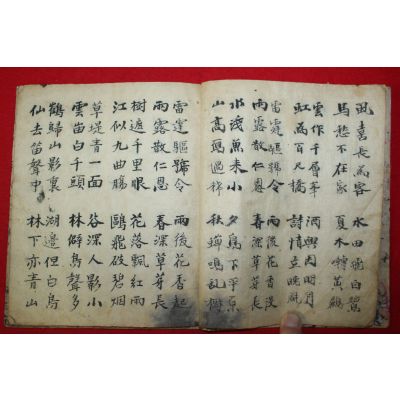 喜長為客 水田飛白鷺
馬愁不在家 夏木囀黃鸝
雲作千層峯 酒興因明月
虹為百尺橋 詩情立晚
雷霆驅號令 雨後花香
雨露散仁恩 春深草芽長
水淺魚来小 夕鳥下平原
山高過稀 秋蟬鳴乱樹
雷霆驅號令 雨後花香起
雨露散仁恩 春深草芽長
樹遮千里眼 花落飄紅雨
江似九曲膓 鷗飛破碧烟
草堤青一面 谷深人影小
雲苗白千頭 林僻鳥聲多
鶴歸山影裏 湖邊但白鳥
仙去笛聲中 林下亦青山